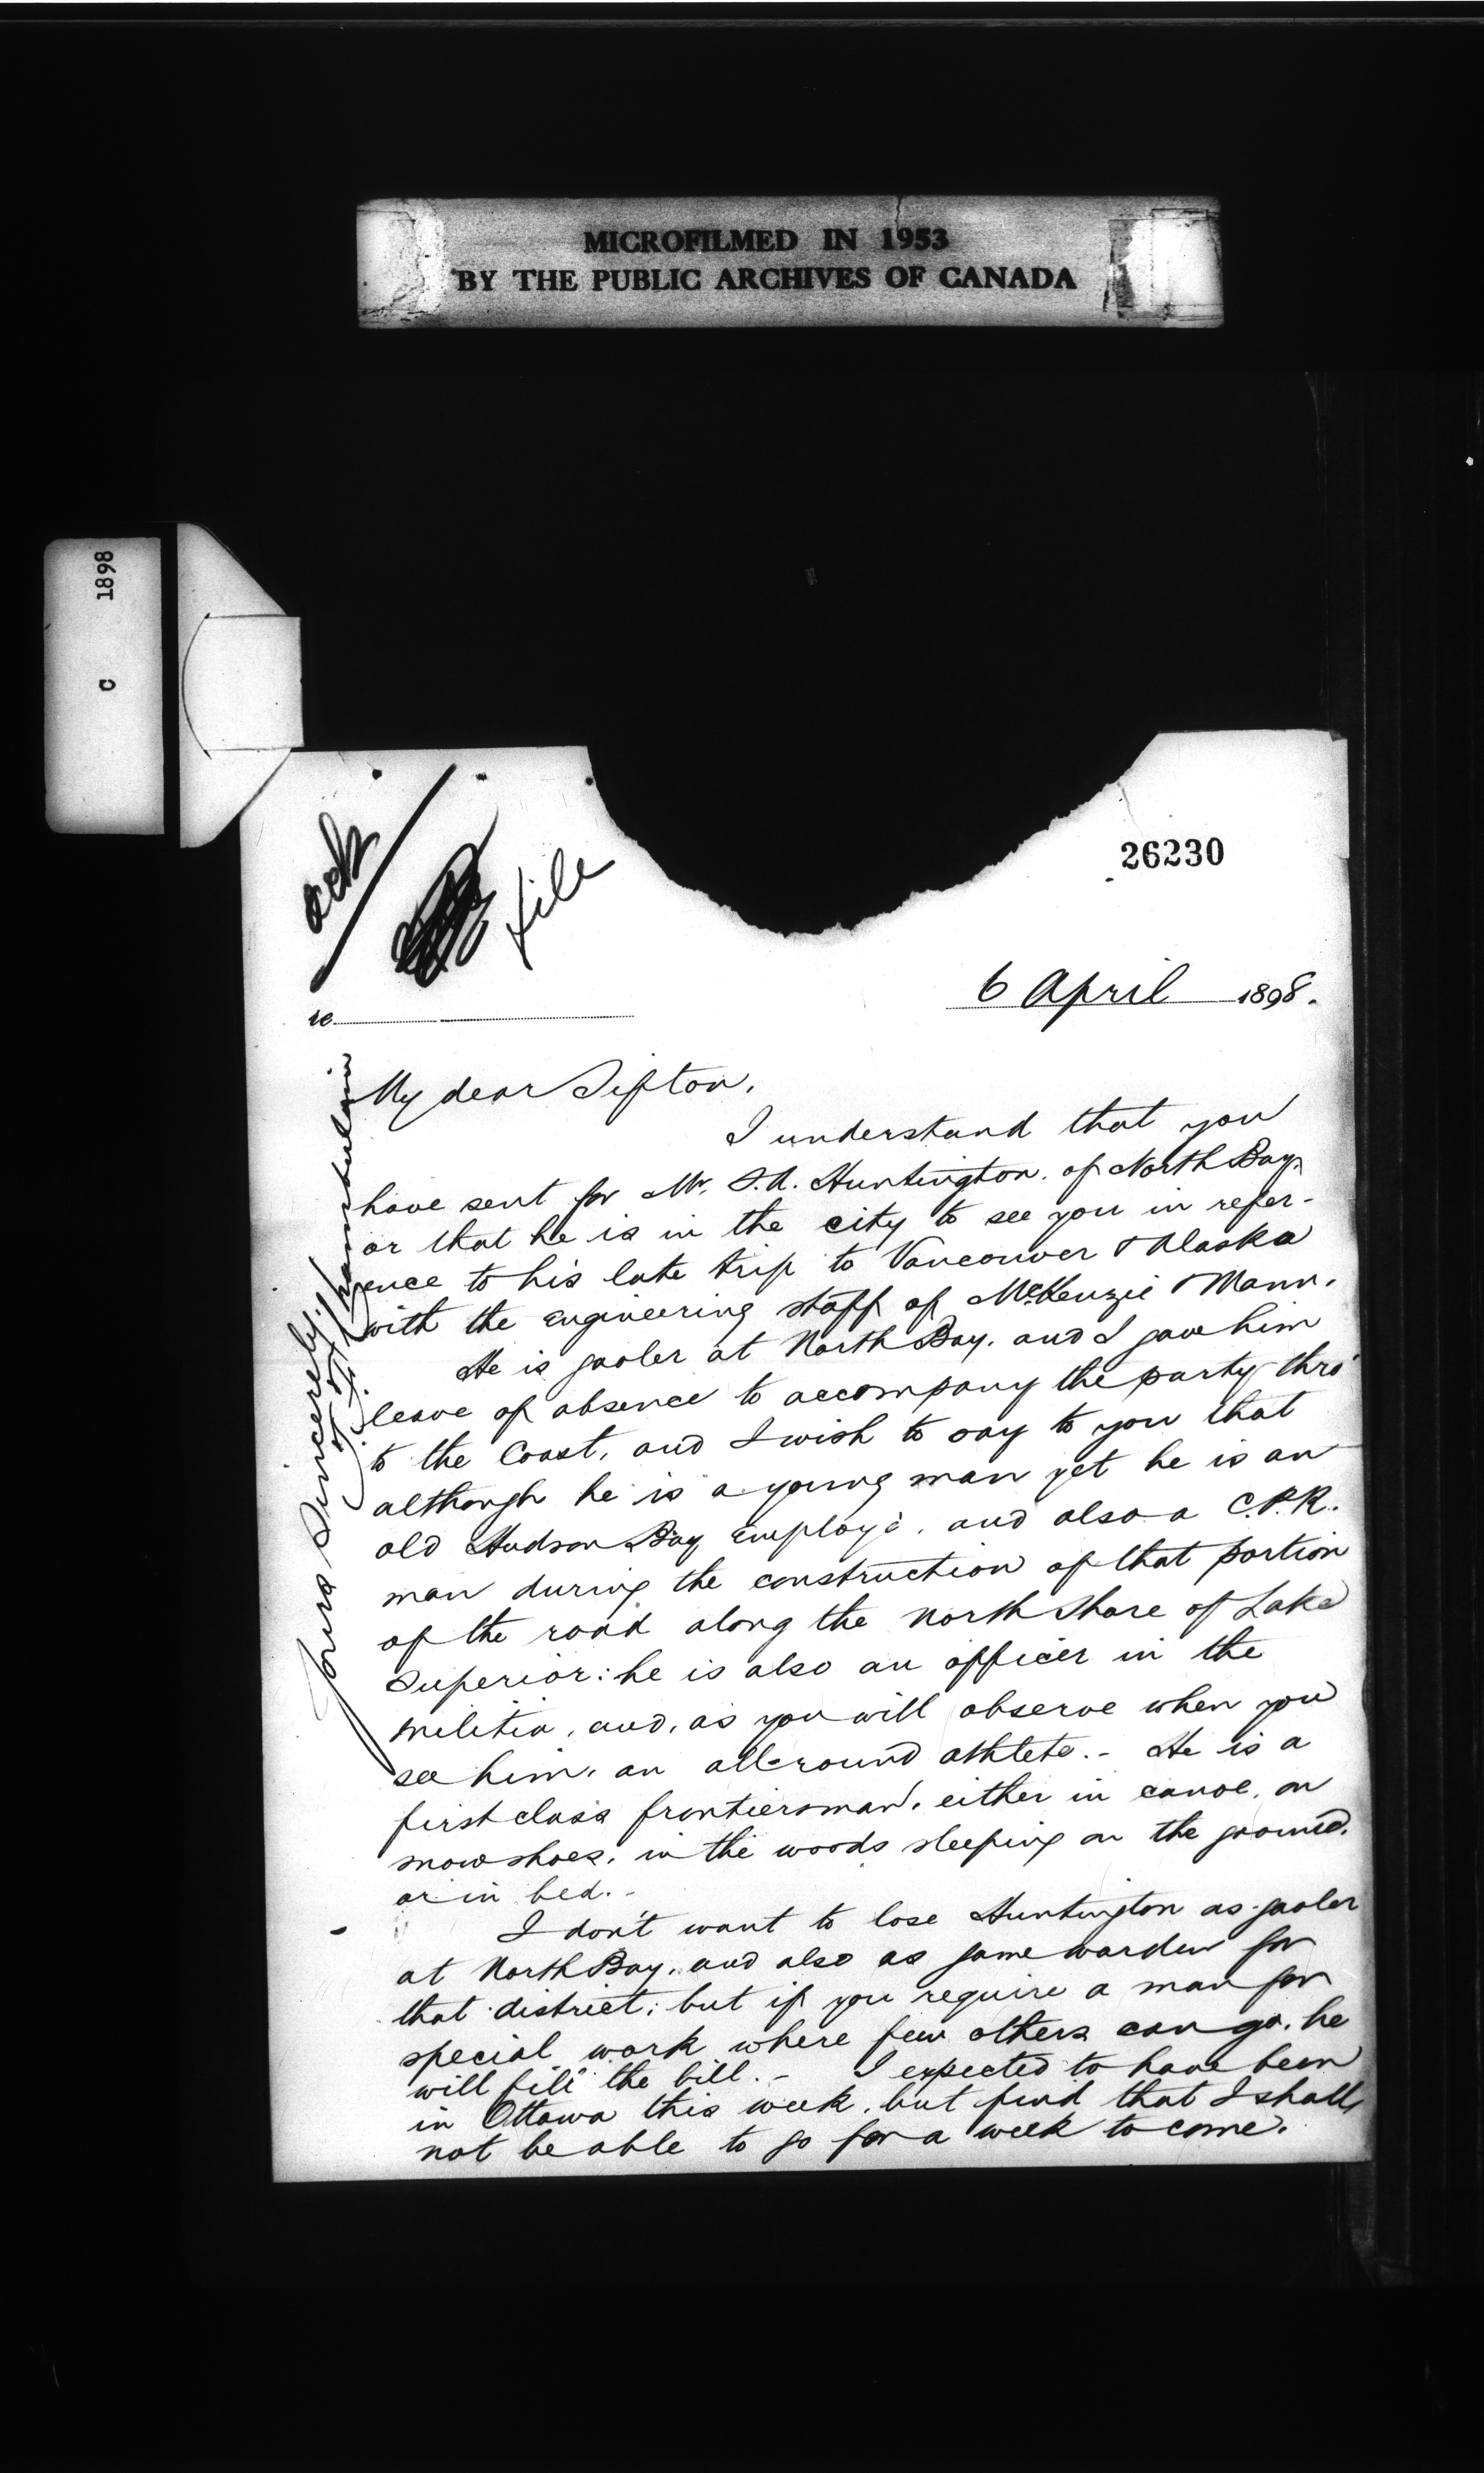 MICROFILMED IN 1953
BY THE PUBLIC ARCHIVES OF CANADA
C 1898
ack
file
26230
6 April 1898.
re
My dear Sifton,
I understand that you
have sent for Mr. S.A. Huntington, of North Bay,
or that he is in the city to see you in refer-
ence to his late trip to Vancouver & Alaska
with the engineering staff of McKenzie & Mann.
He is gaoler at North Bay, and I gave him
leave of absence to accompany the party thro'
to the Coast, and I wish to say to you that
although he is a young man yet he is an
old Hudson Bay employé, and also a C.P.R.
man during the construction of that portion
of the road along the north shore of Lake
Superior: he is also an officer in the
militia, and, as you will observe when you
see him, an all-round athlete. - He is a
first class frontiersman, either in canoe, on
snowshoes, in the woods sleeping on the ground,
or in bed. -
I don't want to lose Huntington as gaoler
at North Bay, and also as game warden for
that district; but if you require a man for
special work where few others can go, he
will fill the bill. - I expected to have been
in Ottawa this week, but find that I shall
not be able to go for a week to come.
Yours Sincerely,
Chamberlain